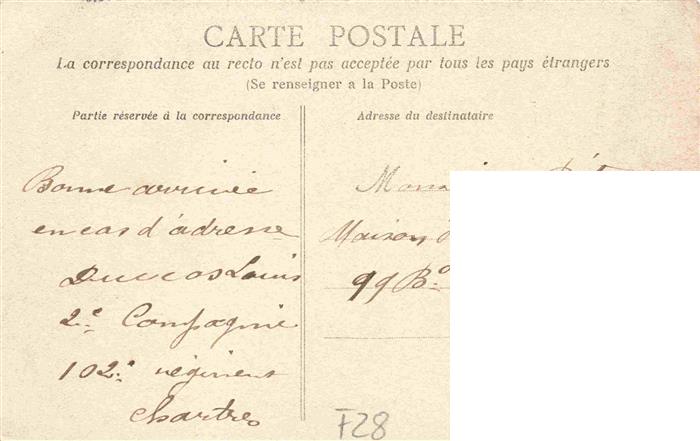 CARTE POSTALE
La correspondance au recto n'est pas acceptée par tous les pays étrangers
(Se renseigner a la Poste)
Partie réservée à la correspondance
Adresse du destinataire
Bonne arrivée
en cas d'adresse
Louis
2e Compagnie
102e régiment
Chartres
Maison
99 Bd
F28